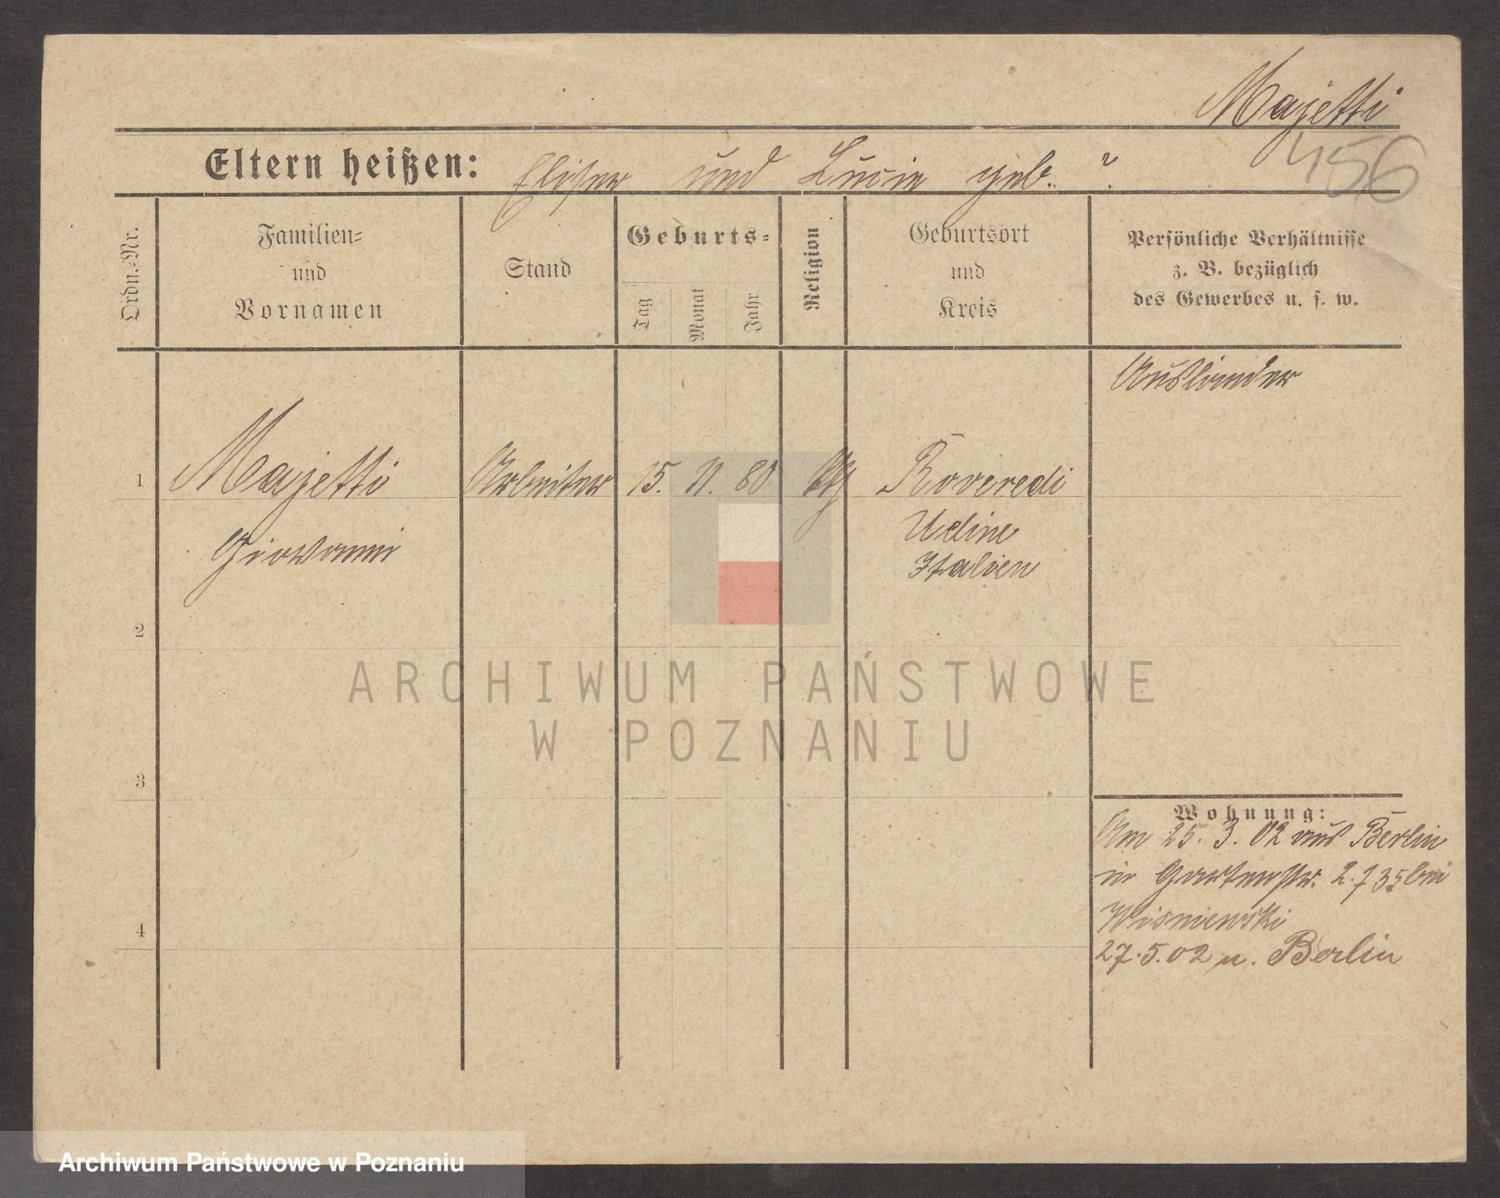 Majetti
456
Eltern heißen: Eliser und Lucie geb. ?
Ordn.-Nr.
Familien-
und
Vornamen
Stand
Geburts-
Tag
Monat
Jahr
Religion
Geburtsort
und
Kreis
Persönliche Verhältnisse
z. B. bezüglich
des Gewerbes u. s. w.
Ausländer
1
Majetti
Arbeiter
15. 11. 80
Roveredi
Giovanni
Udine
Italien
2
ARCHIWUM PAŃSTWOWE
W POZNANIU
3
Wohnung:
Am 25. 3. 02 aus Berlin
in Gartenstr. bei
Wisniewski
4
27.5.02 n. Berlin
Archiwum Państwowe w Poznaniu